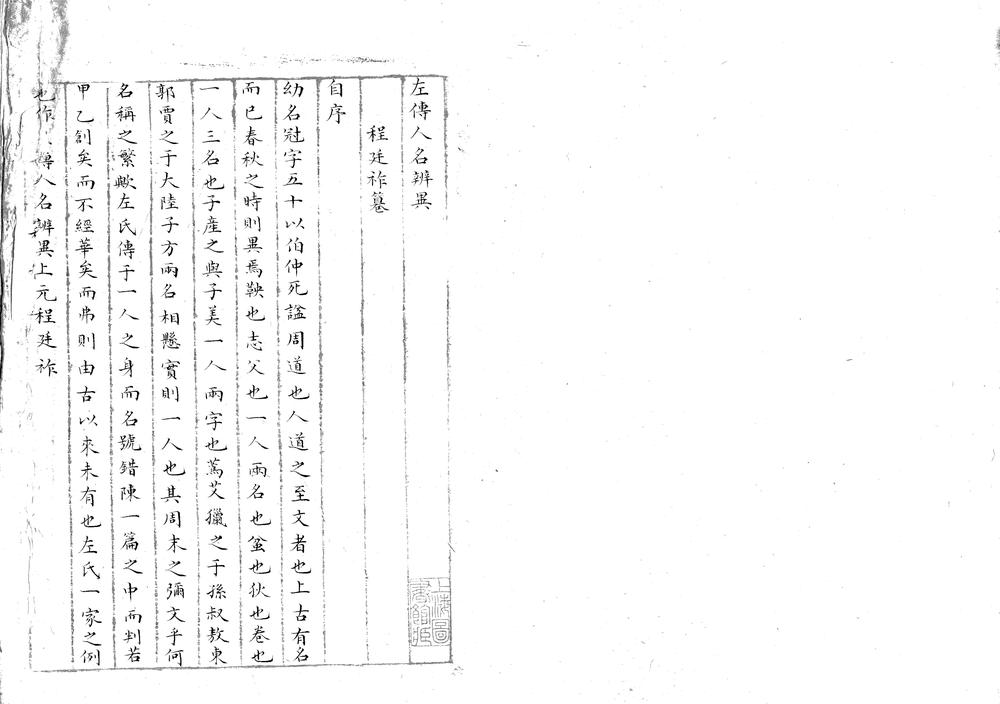 左傳人名辨異
程廷祚纂
自序
幼名冠字五十以伯仲死謚周道也人道之至文者也上古有名
而已春秋之時則異焉鞅也志父也一人兩名也蚠也狄也卷也
一人三名也子產之與子美一人兩字也蒍艾獵之于孫叔敖東
郭賈之于大陸子方兩名相懸實則一人也其周末之彌文乎何
名稱之繁歟左氏傳于一人之身而名號錯陳一篇之中而判若
甲乙創矣而不經華矣而弗則由古以來未有也左氏一家之例
也作左傳人名辨異上元程廷祚
上海圖書館藏